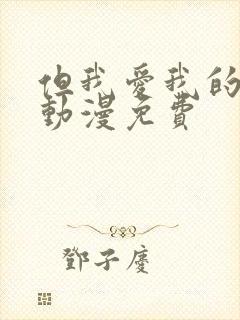 但我愛我的
動漫免費
鄧子慶